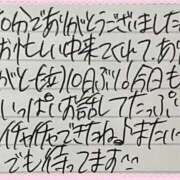 0分でありがとうございました
お忙しい中来てくれてあり
がと(笑)10日ぶり。今日も
いっぱいお話してたっぷり
イチャイチャできたね♪またい
でも待ってます〜